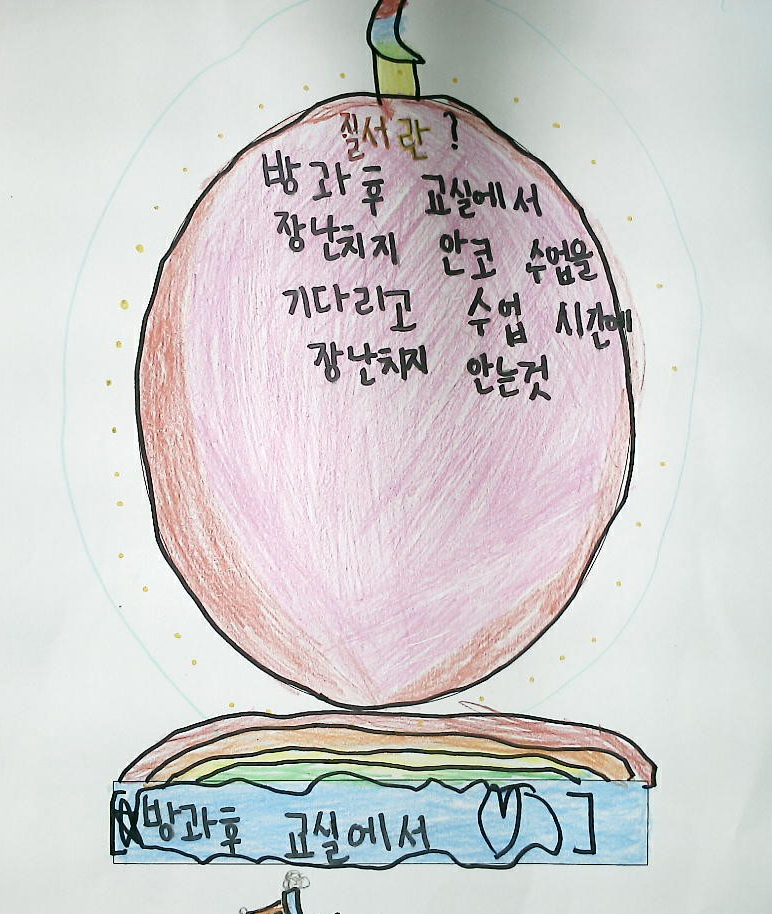 질서란?
방과후 교실에서
장난치지 안코 수업을
기다리고 수업 시간에
장난치지 안는것
방과후 교실에서